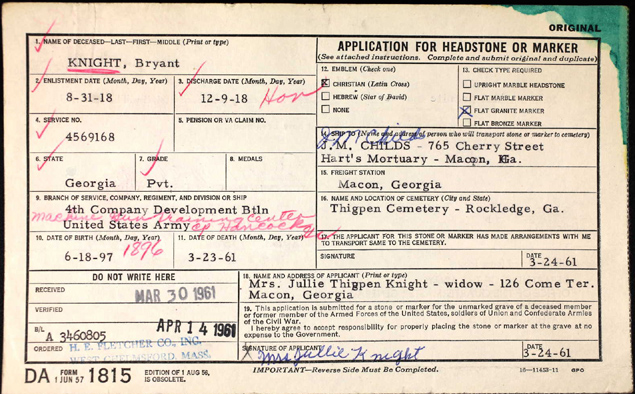 ORIGINAL
1. NAME OF DECEASED—LAST—FIRST—MIDDLE (Print or type)
KNIGHT, Bryant
2. ENLISTMENT DATE (Month, Day, Year)
8-31-18
3. DISCHARGE DATE (Month, Day, Year)
12-9-18
Hon
4. SERVICE NO.
4569168
5. PENSION OR VA CLAIM NO.
6. STATE
Georgia
7. GRADE
Pvt.
8. MEDALS
9. BRANCH OF SERVICE, COMPANY, REGIMENT, AND DIVISION OR SHIP
4th Company Development Btln
Machine Gun Training Center
United States Army Cp Hancock Ga
10. DATE OF BIRTH (Month, Day, Year)
6-18-97 1896
11. DATE OF DEATH (Month, Day, Year)
3-23-61
APPLICATION FOR HEADSTONE OR MARKER
(See attached instructions. Complete and submit original and duplicate)
12. EMBLEM (Check one)
CHRISTIAN (Latin Cross)
HEBREW (Star of David)
NONE
13. CHECK TYPE REQUIRED
UPRIGHT MARBLE HEADSTONE
FLAT MARBLE MARKER
FLAT GRANITE MARKER
FLAT BRONZE MARKER
14. SHIP TO (Name and address of person who will transport stone or marker to cemetery)
J.M. CHILDS - 765 Cherry Street
Hart's Mortuary - Macon, Ga.
15. FREIGHT STATION
Macon, Georgia
16. NAME AND LOCATION OF CEMETERY (City and State)
Thigpen Cemetery - Rockledge, Ga.
17. THE APPLICANT FOR THIS STONE OR MARKER HAS MADE ARRANGEMENTS WITH ME
TO TRANSPORT SAME TO THE CEMETERY.
SIGNATURE
DATE
3-24-61
DO NOT WRITE HERE
RECEIVED
MAR 30 1961
VERIFIED
APR 14 1961
B/L
A 3460805
ORDERED
H. E. FLETCHER CO., INC.
WEST CHELMSFORD, MASS.
18. NAME AND ADDRESS OF APPLICANT (Print or type)
Mrs. Jullie Thigpen Knight - widow - 126 Come Ter.
Macon, Georgia
19. This application is submitted for a stone or marker for the unmarked grave of a deceased member
or former member of the Armed Forces of the United States, soldiers of Union and Confederate Armies
of the Civil War.
I hereby agree to accept responsibility for properly placing the stone or marker at the grave at no
expense to the Government.
SIGNATURE OF APPLICANT
Mrs Jullie Knight
DATE
3-24-61
DA FORM 1 JUN 57 1815
EDITION OF 1 AUG 56,
IS OBSOLETE.
IMPORTANT—Reverse Side Must Be Completed.
GPO